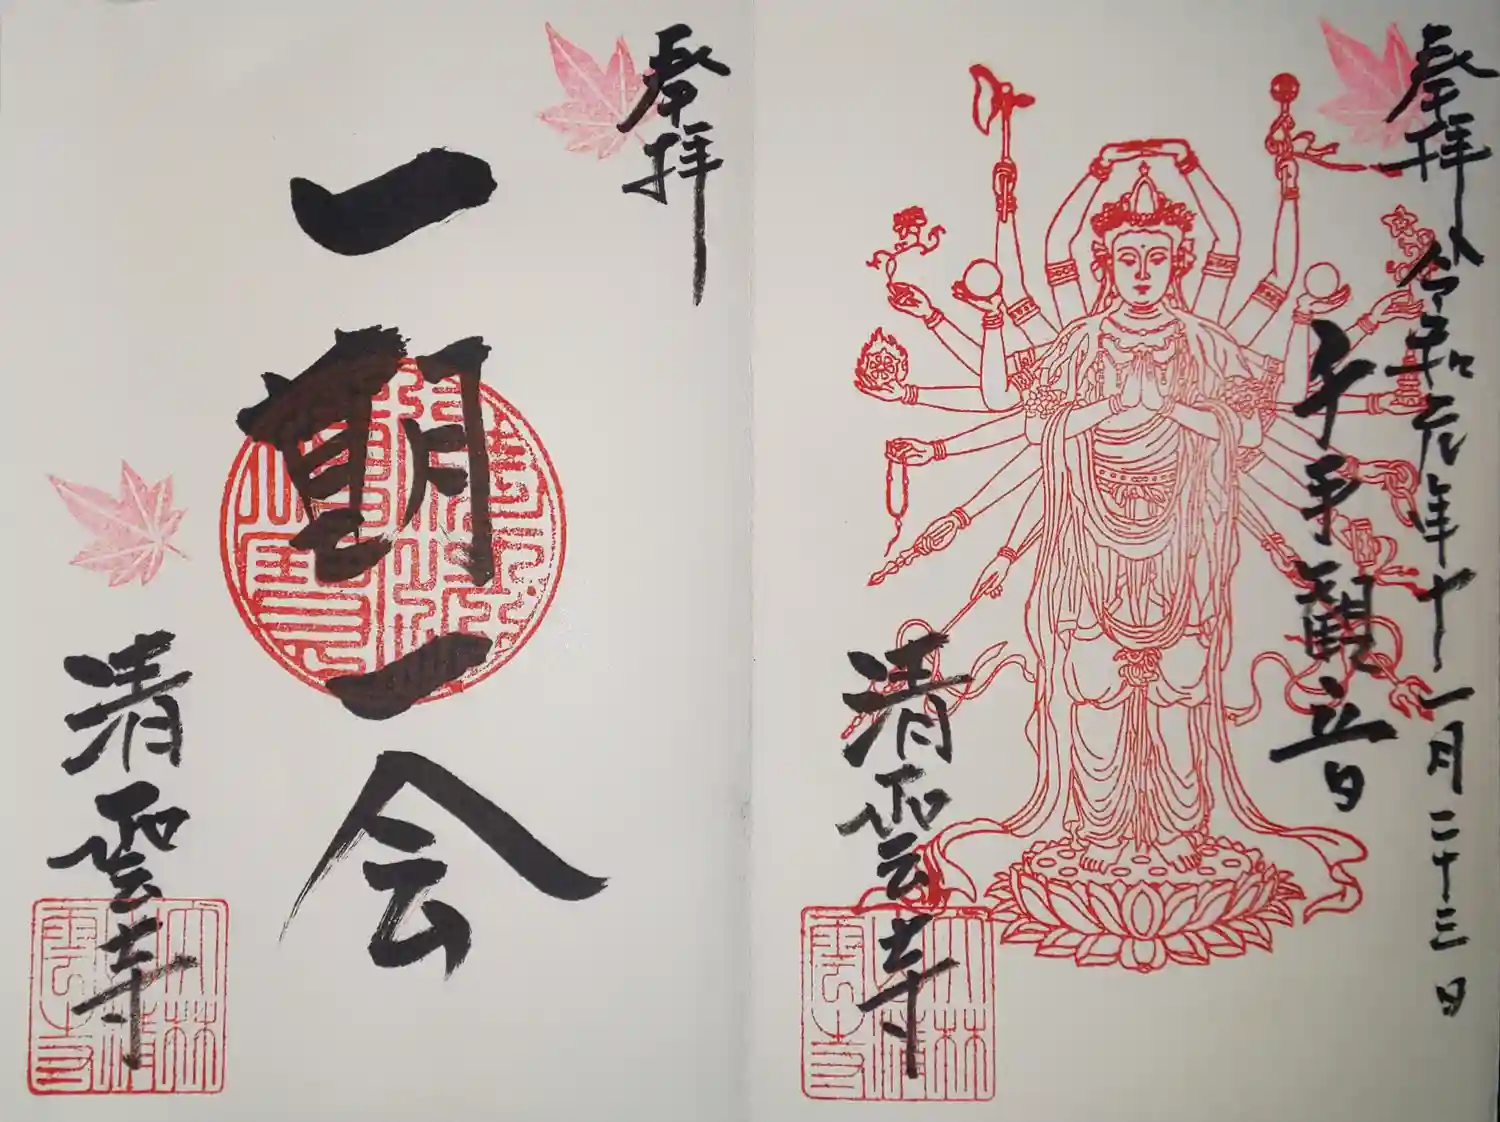 奉拝 令和元年十一月二十三日
千手観音
清雲寺
奉拝
一期一会
清雲寺